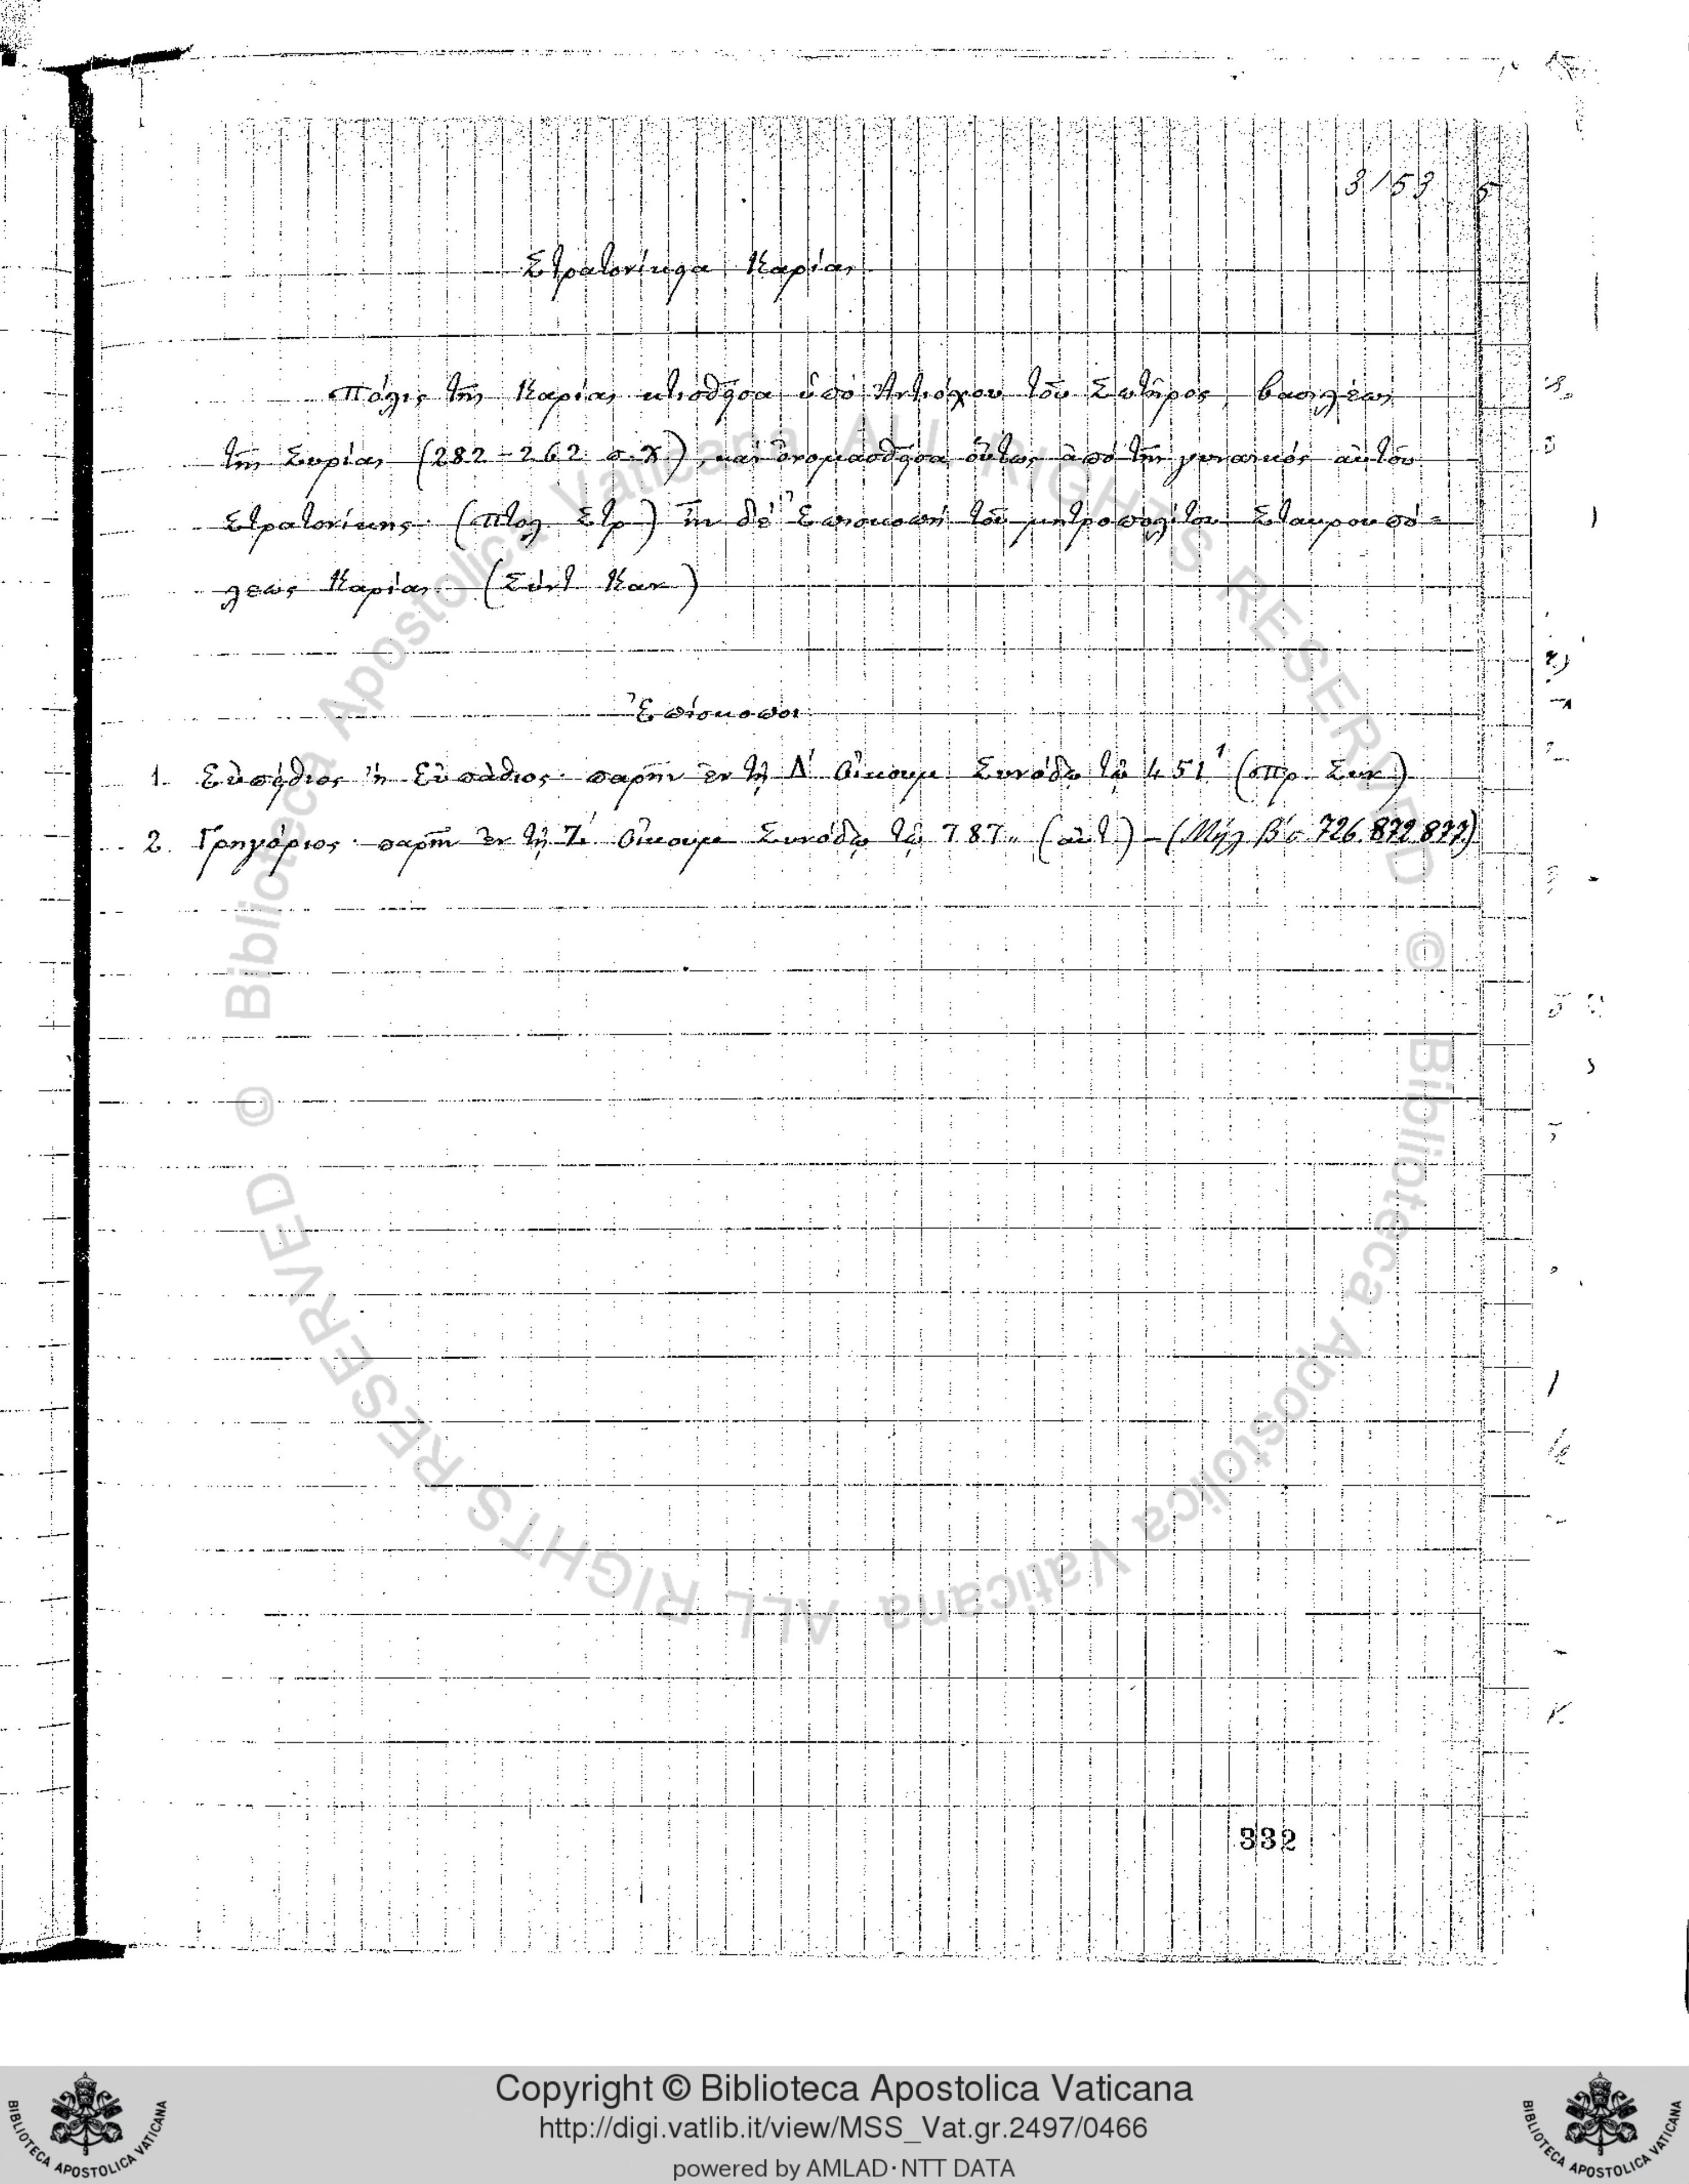 3153
Στρατονίκεια Καρίας
Πόλις τῆς Καρίας κτισθεῖσα ὑπὸ Ἀντιόχου τοῦ Σωτῆρος, βασιλέως
τῆς Συρίας (282-262 π.Χ), καὶ ὀνομασθεῖσα οὕτως ἀπὸ τῆς γυναικός αὐτοῦ
Στρατονίκης. (Πτολ Στρ) ἦν δὲ Ἐπισκοπὴ τοῦ μητροπολίτου Σταυρουπό-
λεως Καρίας. (Σύντ Καν)
Ἐπίσκοποι
1. Εὐπείθιος ἢ Εὐπάθιος· παρῆν ἐν τῇ Δ΄ Οἰκουμ Συνόδῳ τῷ 451 (πρ. Συν)
2. Γρηγόριος· παρῆν ἐν τῇ Ζ΄ Οἰκουμ Συνόδῳ τῷ 787 (αὐτ) - (Μελ β΄ 726.872.877)
332
© Biblioteca Apostolica Vaticana ALL RIGHTS RESERVED © Biblioteca Apostolica Vaticana ALL RIGHTS RESERVED
Copyright © Biblioteca Apostolica Vaticana
http://digi.vatlib.it/view/MSS_Vat.gr.2497/0466
powered by AMLAD·NTT DATA
BIBLIOTECA APOSTOLICA VATICANA
BIBLIOTECA APOSTOLICA VATICANA